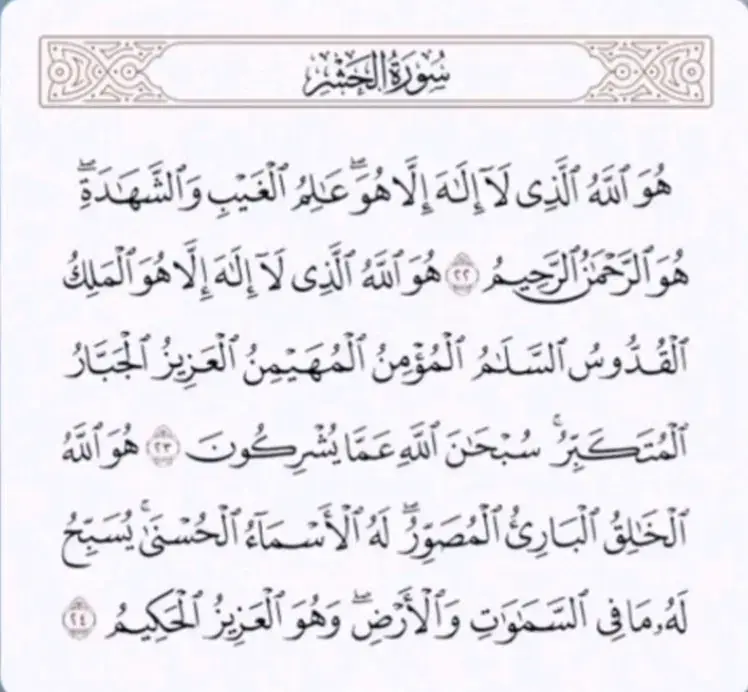 سُورَةُ الحَشْرِ
هُوَ ٱللَّهُ ٱلَّذِى لَآ إِلَٰهَ إِلَّا هُوَ ۖ عَٰلِمُ ٱلْغَيْبِ وَٱلشَّهَٰدَةِ ۖ
هُوَ ٱلرَّحْمَٰنُ ٱلرَّحِيمُ ٢٢ هُوَ ٱللَّهُ ٱلَّذِى لَآ إِلَٰهَ إِلَّا هُوَ ٱلْمَلِكُ
ٱلْقُدُّوسُ ٱلسَّلَٰمُ ٱلْمُؤْمِنُ ٱلْمُهَيْمِنُ ٱلْعَزِيزُ ٱلْجَبَّارُ
ٱلْمُتَكَبِّرُ ۚ سُبْحَٰنَ ٱللَّهِ عَمَّا يُشْرِكُونَ ٢٣ هُوَ ٱللَّهُ
ٱلْخَٰلِقُ ٱلْبَارِئُ ٱلْمُصَوِّرُ ۖ لَهُ ٱلْأَسْمَآءُ ٱلْحُسْنَىٰ ۚ يُسَبِّحُ
لَهُۥ مَا فِى ٱلسَّمَٰوَٰتِ وَٱلْأَرْضِ ۖ وَهُوَ ٱلْعَزِيزُ ٱلْحَكِيمُ ٢٤